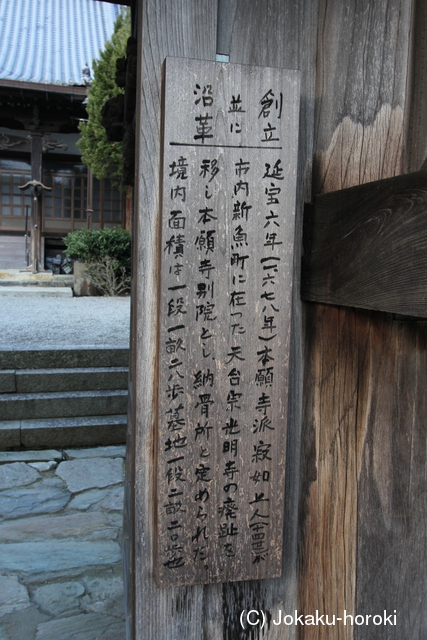 創立
並に
沿革
延宝六年(一六七八年)本願寺派寂如上人(十四世)が
市内新魚町に在った天台宗光明寺の廃趾を
移し本願寺別院とし、納骨所と定められた
境内面積は一段一畝二八歩、墓地一段二畝二〇歩也
(C) Jokaku-horoki